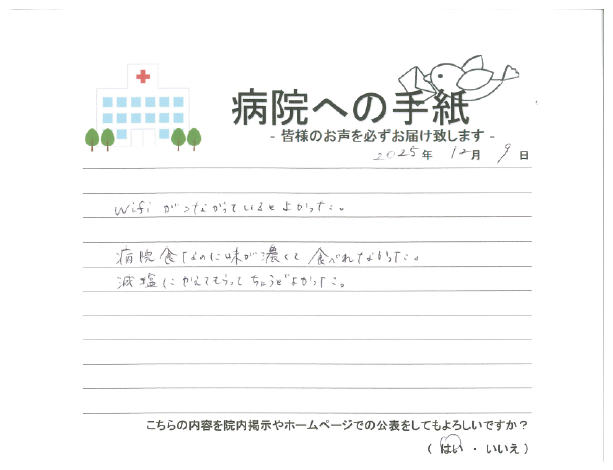 病院への手紙
- 皆様のお声を必ずお届け致します -
2025年 12月 9日
wifiがつながっているとよかった。
病院食なのに味が濃くて食べれなかった。
減塩にかえてもらってちょうどよかった。
こちらの内容を院内掲示やホームページでの公表をしてもよろしいですか？
( はい ・ いいえ )